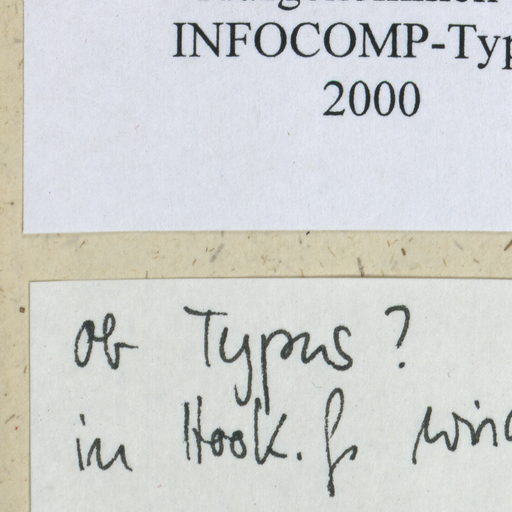 INFOCOMP-Typ
2000
ob Typus?
in Hook. f.